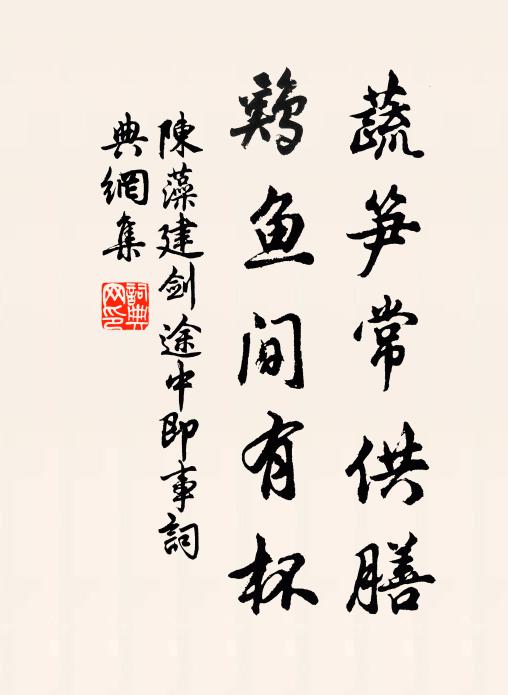 蔬笋常供膳
鷄鱼间有杯
陳藻建劍途中即事詞
典網集
詞典網印